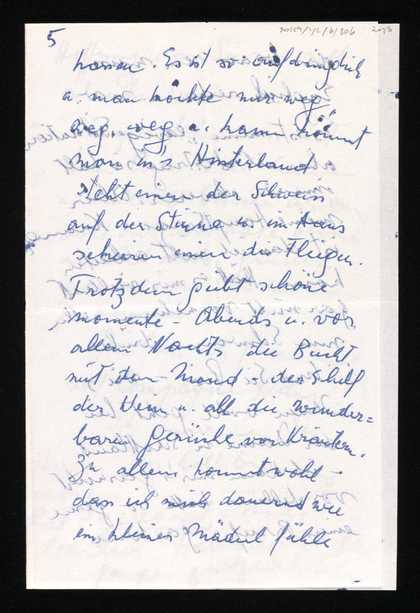 5
hassen. Es ist so aufdringlich
u. man möchte nur weg,
weg, weg u. kaum kommt
man ins Hinterland
steht einem der Schweiss
auf der Stirne u. im Haus
einen die Fliegen.
Trotzdem gibt schöne
momente - Abends u. vor
allem Nachts die Bucht
mit dem Mond - der Schilf
der u. all die wunder=
baren Gerüche von Kräutern.
Zu allem kommt wohl -
dass ich mich dauernd wie
ein kleines Mädel fühle